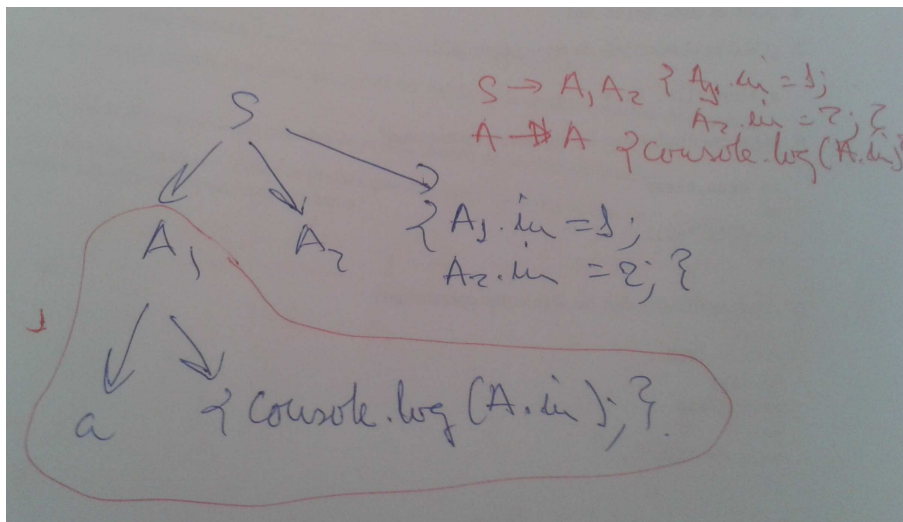 S → A₁ A₂ { A₁.in = 1;
A₂.in = 2; }
A → A {console.log(A.in)}
S
A₁ A₂ { A₁.in = 1;
A₂.in = 2; }
1
a { console.log(A.in); }.